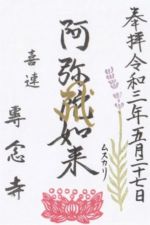 奉拝 令和三年五月二十七日
ムスカリ
阿弥陀如来
喜連
專念寺